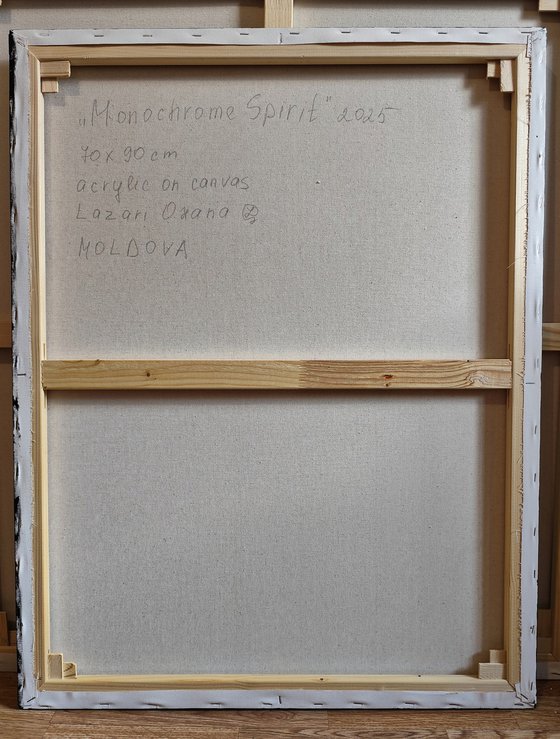 „Monochrome Spirit" 2025
70x90cm
acrylic on canvas
Lazari Oxana
MOLDOVA